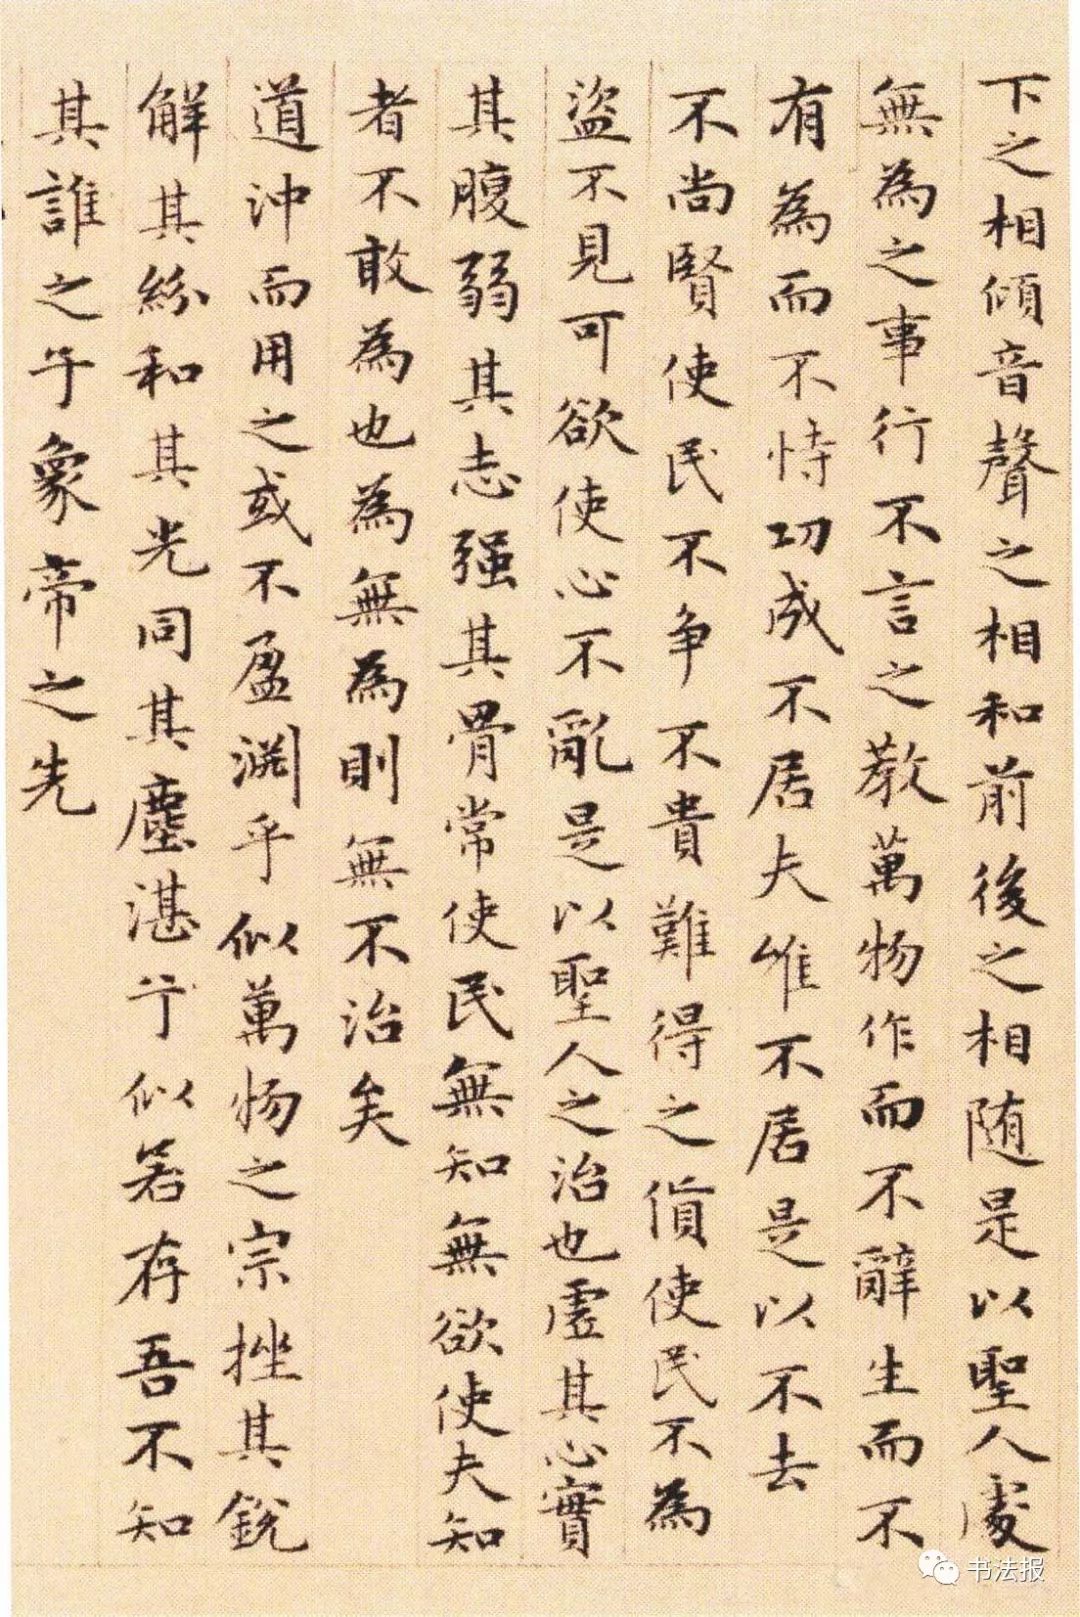 下之相傾音聲之相和前後之相随是以聖人處
無為之事行不言之教萬物作而不辭生而不
有為而不恃功成不居夫惟不居是以不去
不尚賢使民不争不貴難得之貨使民不為
盜不見可欲使心不亂是以聖人之治也虚其心實
其腹弱其志强其骨常使民無知無欲使夫知
者不敢為也為無為則無不治矣
道沖而用之或不盈淵乎似萬物之宗挫其銳
解其紛和其光同其塵湛兮似若存吾不知
其誰之子象帝之先
书法报